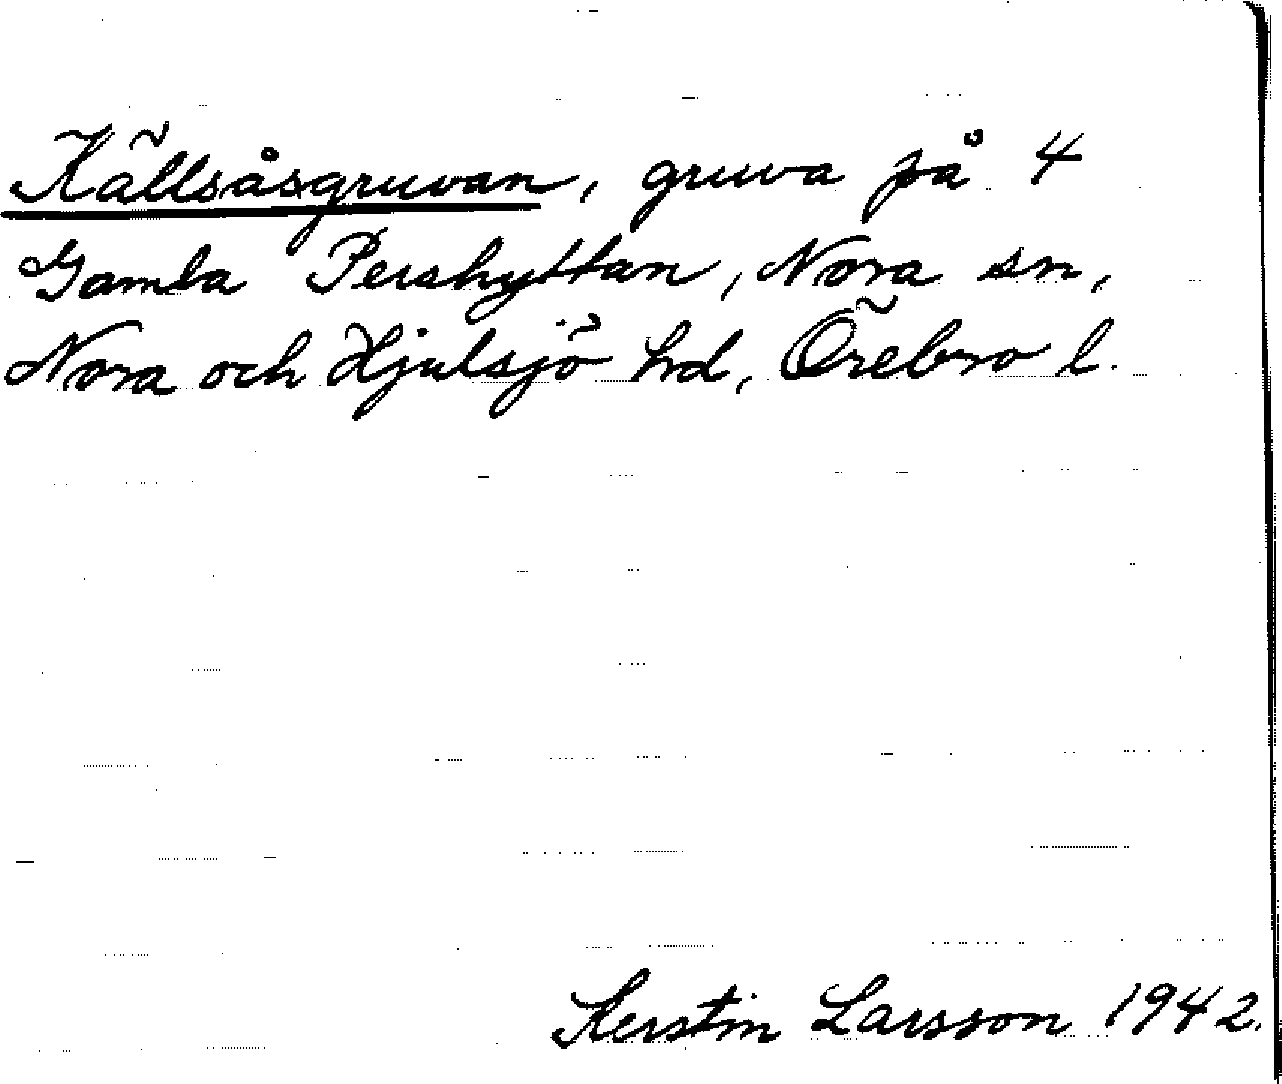 Källsåsgruvan, gruva på 4
Gamla Pershyttan, Nora sn,
Nora och Hjulsjö hd, Örebro l.
Kerstin Larsson 1942.